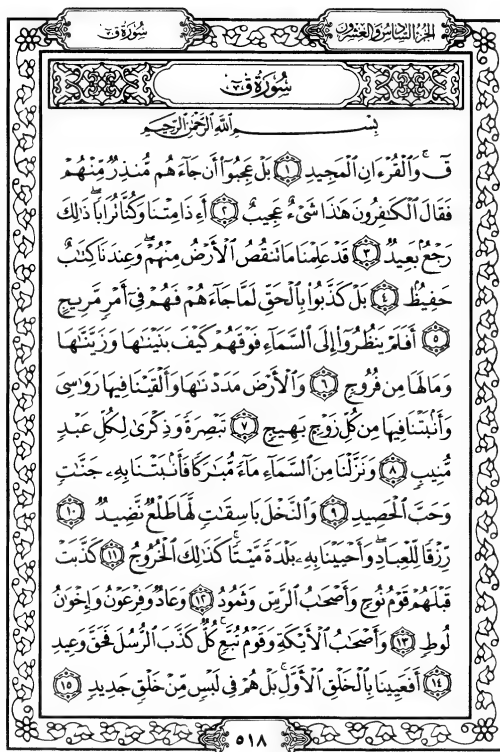 الجزء السادس والعشرون
سورة ق
سُورَةُ ق
بِسْمِ اللَّهِ الرَّحْمَٰنِ الرَّحِيمِ
قٓۚ وَالْقُرْءَانِ الْمَجِيدِ ۝١ بَلْ عَجِبُوٓا۟ أَن جَآءَهُم مُّنذِرٌ مِّنْهُمْ
فَقَالَ الْكَٰفِرُونَ هَٰذَا شَىْءٌ عَجِيبٌ ۝٢ أَءِذَا مِتْنَا وَكُنَّا تُرَابًاۖ ذَٰلِكَ
رَجْعٌۢ بَعِيدٌ ۝٣ قَدْ عَلِمْنَا مَا تَنقُصُ الْأَرْضُ مِنْهُمْۖ وَعِندَنَا كِتَٰبٌ
حَفِيظٌۢ ۝٤ بَلْ كَذَّبُوا۟ بِالْحَقِّ لَمَّا جَآءَهُمْ فَهُمْ فِىٓ أَمْرٍ مَّرِيجٍ
۝٥ أَفَلَمْ يَنظُرُوٓا۟ إِلَى السَّمَآءِ فَوْقَهُمْ كَيْفَ بَنَيْنَٰهَا وَزَيَّنَّٰهَا
وَمَا لَهَا مِن فُرُوجٍ ۝٦ وَالْأَرْضَ مَدَدْنَٰهَا وَأَلْقَيْنَا فِيهَا رَوَٰسِىَ
وَأَنۢبَتْنَا فِيهَا مِن كُلِّ زَوْجٍۭ بَهِيجٍ ۝٧ تَبْصِرَةً وَذِكْرَىٰ لِكُلِّ عَبْدٍ
مُّنِيبٍ ۝٨ وَنَزَّلْنَا مِنَ السَّمَآءِ مَآءً مُّبَٰرَكًا فَأَنۢبَتْنَا بِهِۦ جَنَّٰتٍ
وَحَبَّ الْحَصِيدِ ۝٩ وَالنَّخْلَ بَاسِقَٰتٍ لَّهَا طَلْعٌ نَّضِيدٌ ۝١٠
رِّزْقًا لِّلْعِبَادِۖ وَأَحْيَيْنَا بِهِۦ بَلْدَةً مَّيْتًاۚ كَذَٰلِكَ الْخُرُوجُ ۝١١ كَذَّبَتْ
قَبْلَهُمْ قَوْمُ نُوحٍ وَأَصْحَٰبُ الرَّسِّ وَثَمُودُ ۝١٢ وَعَادٌ وَفِرْعَوْنُ وَإِخْوَٰنُ
لُوطٍ ۝١٣ وَأَصْحَٰبُ الْأَيْكَةِ وَقَوْمُ تُبَّعٍۚ كُلٌّ كَذَّبَ الرُّسُلَ فَحَقَّ وَعِيدِ
۝١٤ أَفَعَيِينَا بِالْخَلْقِ الْأَوَّلِۚ بَلْ هُمْ فِى لَبْسٍ مِّنْ خَلْقٍ جَدِيدٍ ۝١٥
٥١٨